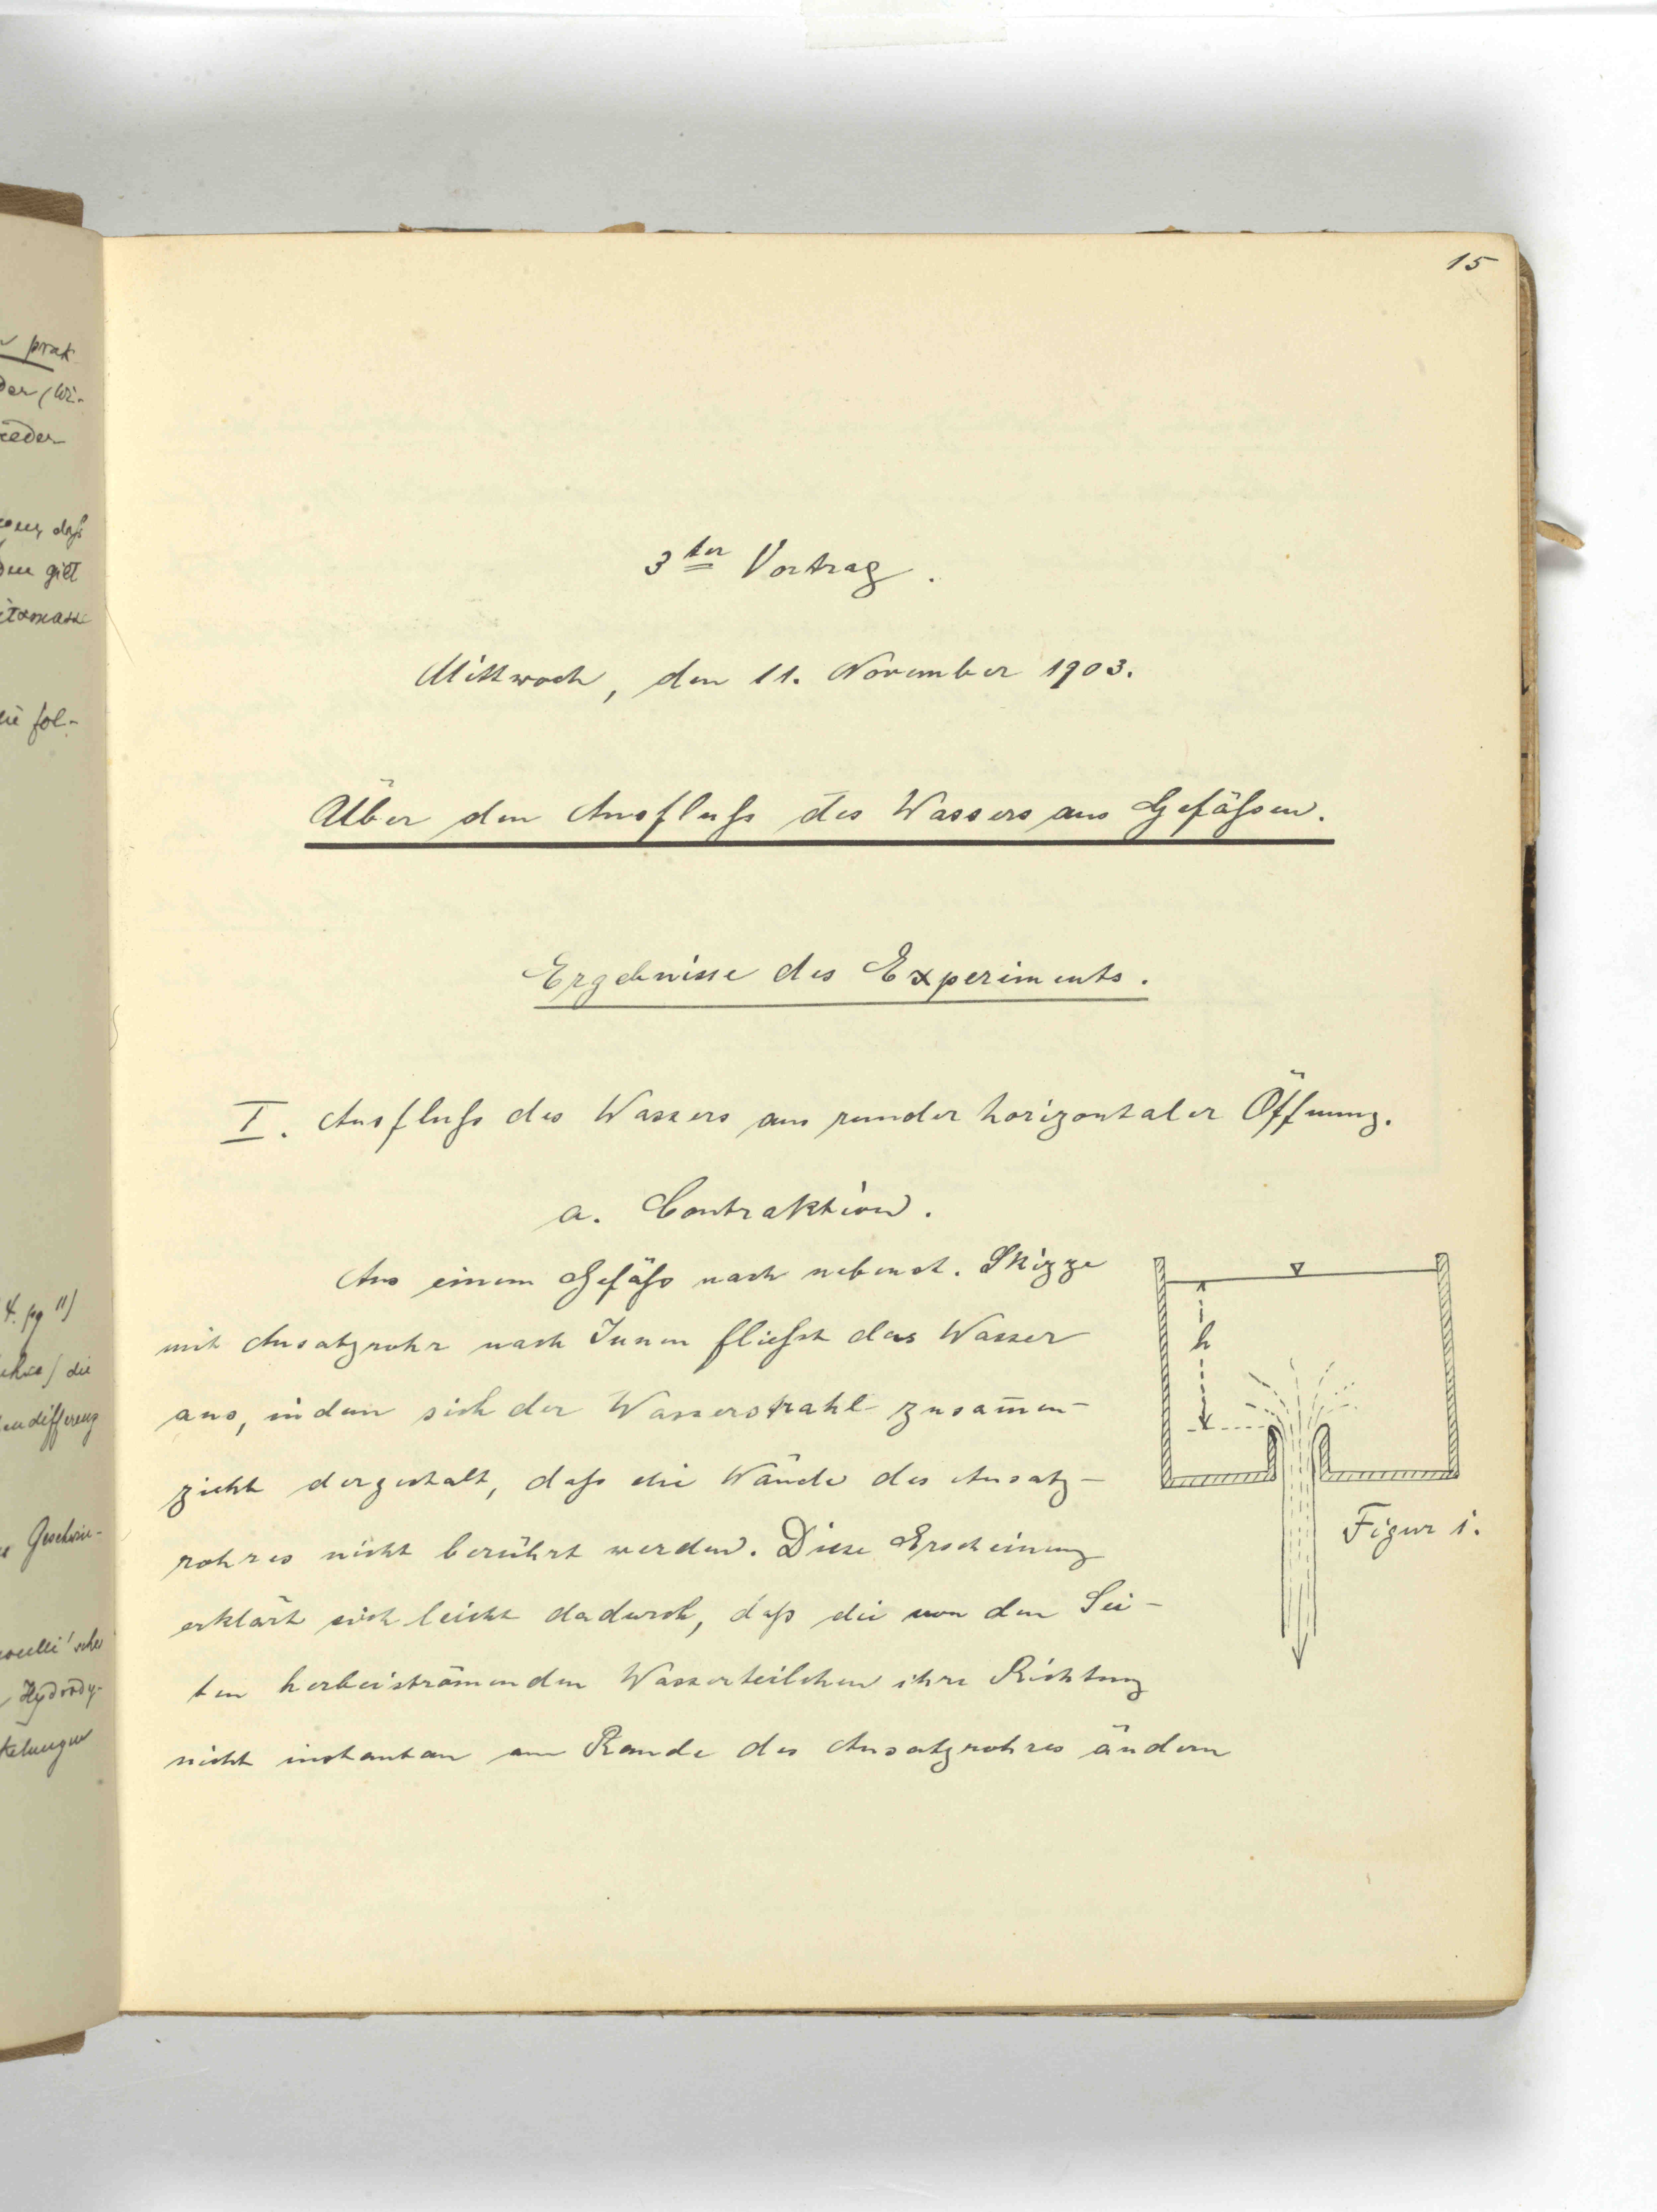 prak
der (Wi-
ieder
dass
den gilt
itsmasse
fol-
4. pg 11)
die
endifferenz
Geschwin-
noulli'sche
Hydrody-
15
3ter Vortrag.
Mittwoch, den 11. November 1903.
Über den Ausfluß des Wassers aus Gefäßen.
Ergebnisse des Experiments.
I. Ausfluß des Wassers aus runder horizontaler Öffnung.
a. Contraktion.
Aus einem Gefäß nach nebenst. Skizze
mit Ansatzrohr nach Innen fließt das Wasser
aus, indem sich der Wasserstrahl zusam̄en-
zieht dergestalt, daß die Wände des Ansatz-
rohres nicht berührt werden. Diese Erscheinung
erklärt sich leicht dadurch, daß die von den Sei-
ten herbeiströmenden Wasserteilchen ihre Richtung
nicht instantan am Rande des Ansatzrohres ändern
h
Figur 1.